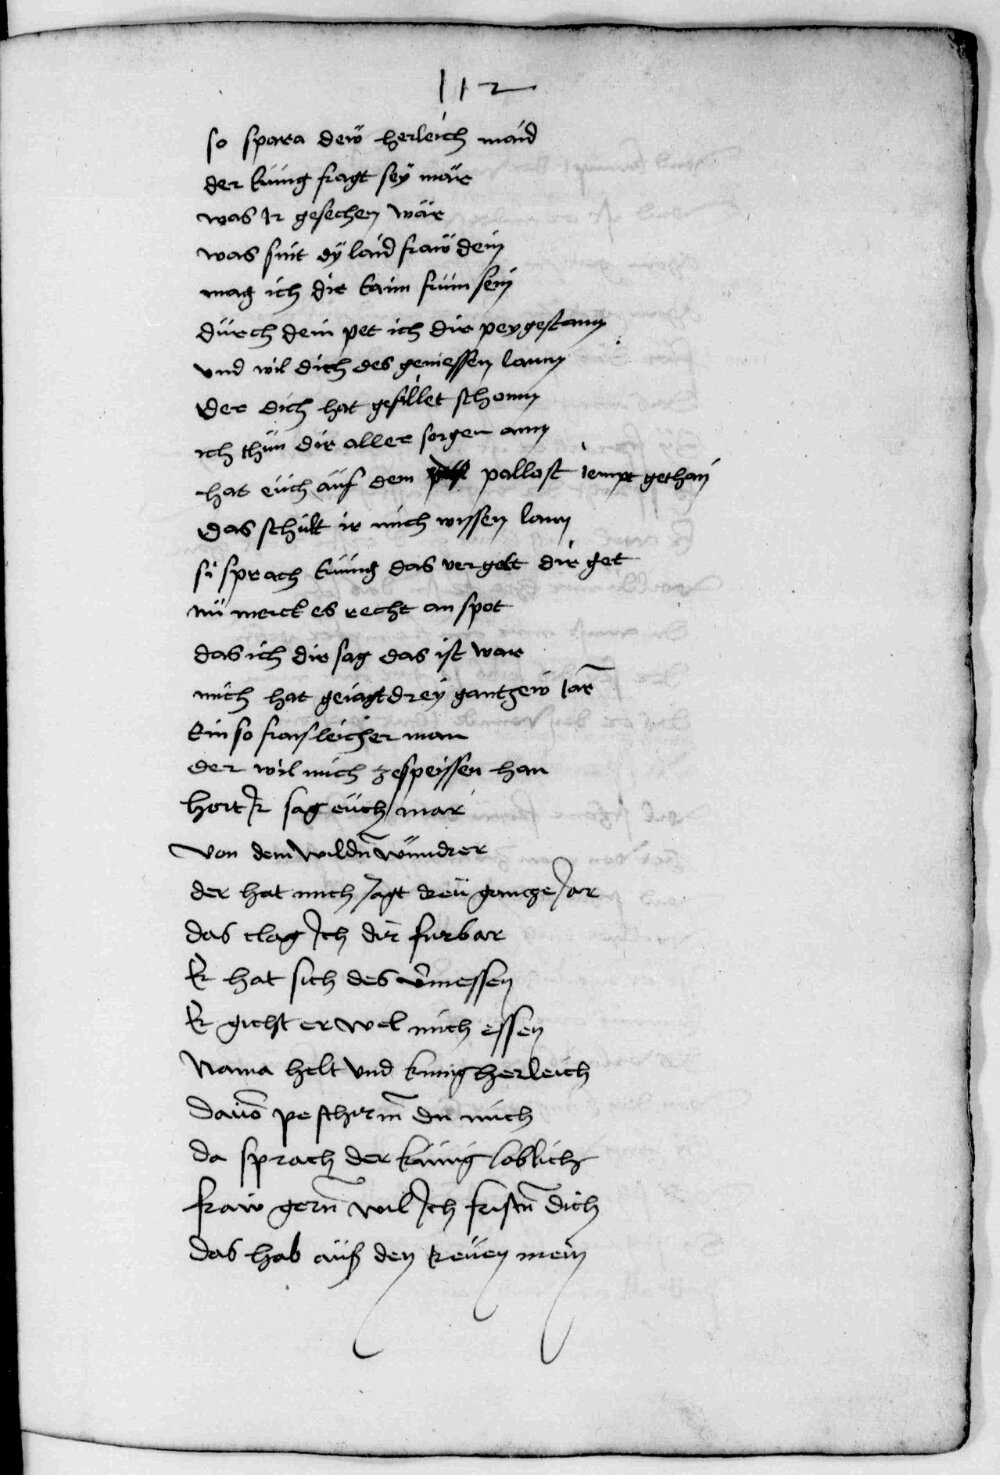 112
so sprara dew herleich maid
der kunig fragt sey mär
was Ir geschechen wär
was sint dy laid fraw dein
mag ich dir kain frum sein
durch dein pet ich dir pey gestann
vnd wil dich des geniessen lann
Der dich hat gefillet schonn
ich thün dir aller sorgen ann
hat euch auf dem pallast iempt gethan
Das schült ir mich wyssen lann
si sprach kunig das vergelt dir got
nü merck es recht an spot
das ich dir sag das ist war
mich hat geiagt drey gantzew Iar
Ein so fraysleicher man
der wil mich zespeyssen han
hort Ir sag euch mär
Von dem wildn̄ wundrer
der hat mich Jagt dreü gancze Jar
das clag Ich dir furbar
Er hat sich des v̄messen
Er gicht er wel mich essen
Nama helt vnd kunig herleich
Dauō peschirm̄ du mich
da sprach der kunig loblich
fraw gern̄ wil Ich fristn̄ dich
das hab auf den treuen mein